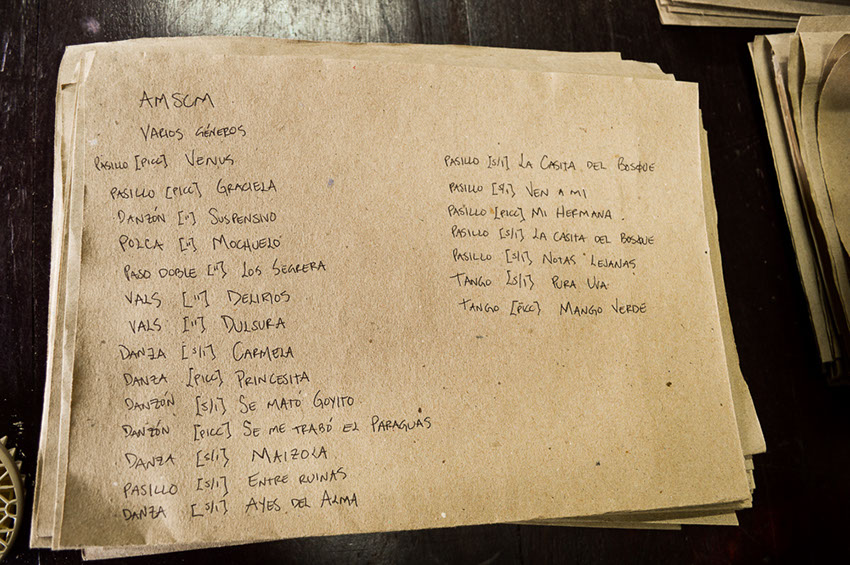 AMSCM
VARIOS GÉNEROS
PASILLO [PICC] VENUS
PASILLO [PICC] GRACIELA
DANZÓN ["] SUSPENSIVO
POLCA ["] MOCHUELO
PASO DOBLE ["] LOS SEGRERA
VALS ["] DELIRIOS
VALS ["] DULSURA
DANZA [S/I] CARMELA
DANZA [PICC] PRINCESITA
DANZÓN [S/I] SE MATÓ GOYITO
DANZÓN [PICC] SE ME TRABÓ EL PARAGUAS
DANZA [S/I] MAIZOLA
PASILLO [S/I] ENTRE RUINAS
DANZA [S/I] AYES DEL ALMA
PASILLO [S/I] LA CASITA DEL BOSQUE
PASILLO [S/I] VEN A MI
PASILLO [PICC] MI HERMANA
PASILLO [S/I] LA CASITA DEL BOSQUE
PASILLO [S/I] NOTAS LEJANAS
TANGO [S/I] PURA UVA
TANGO [PICC] MANGO VERDE